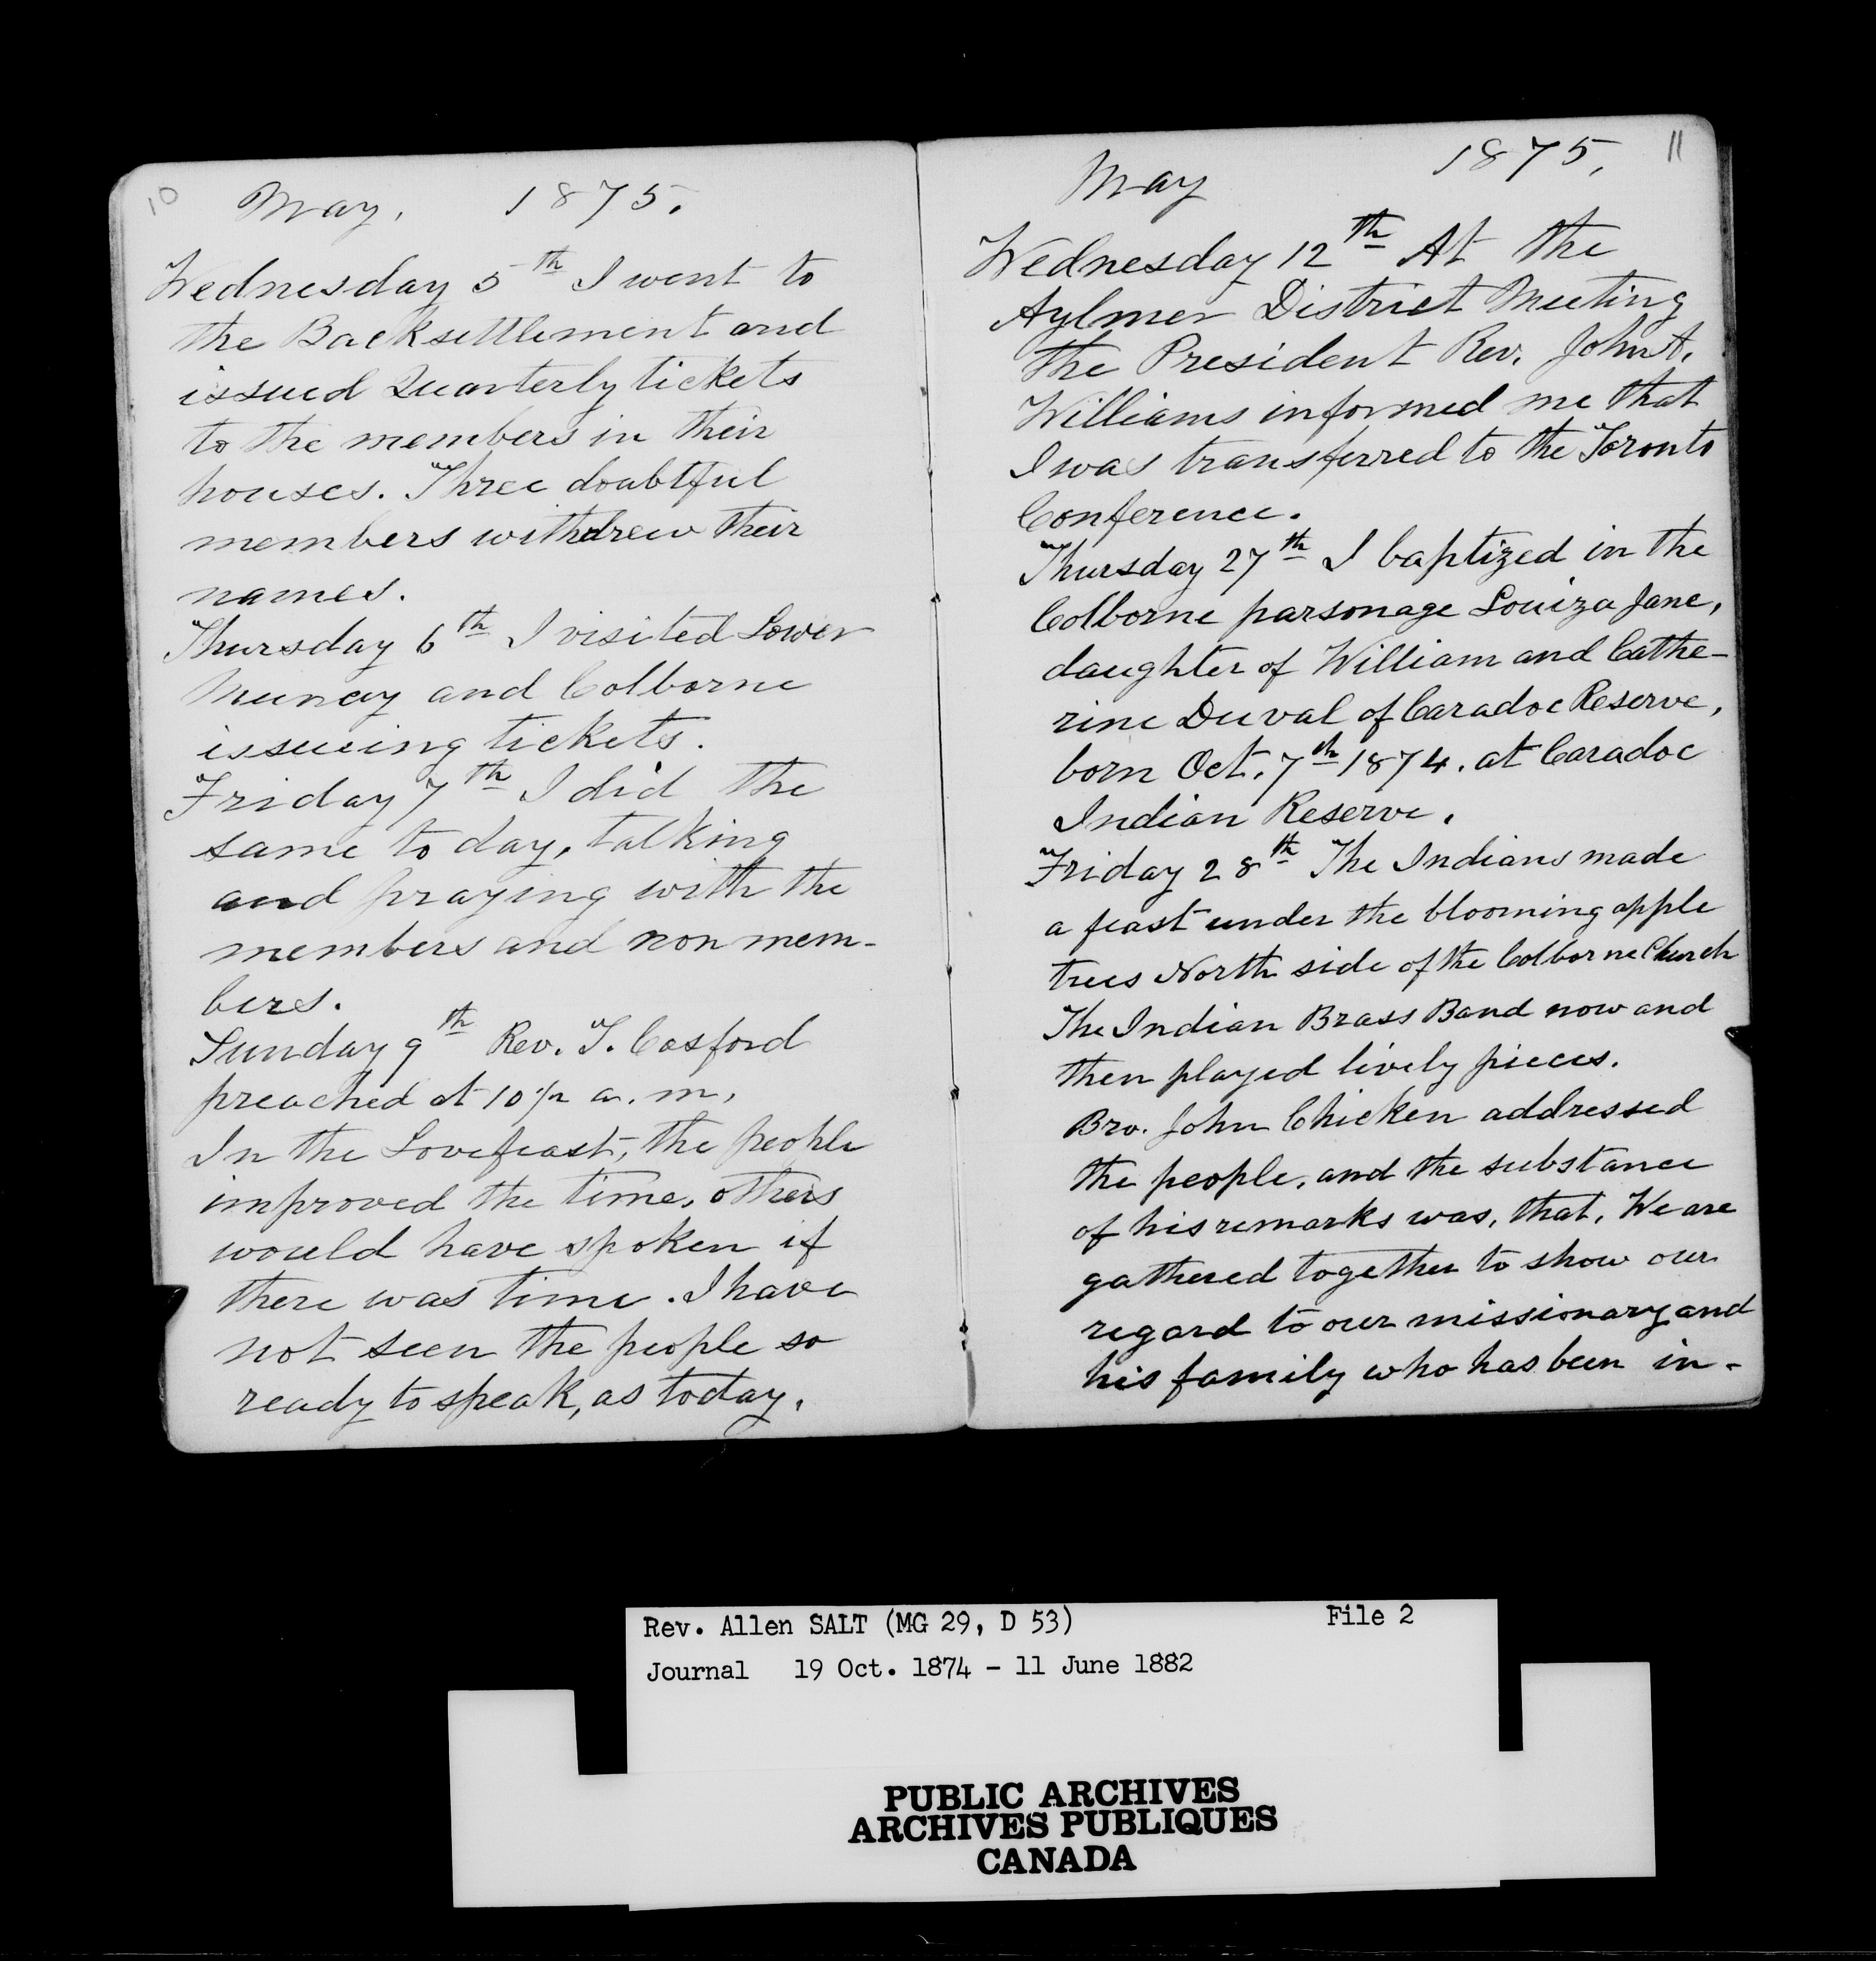 10
May. 1875.
Wednesday 5th I went to
the Backsettlement and
issued Quarterly tickets
to the members in their
houses. Three doubtful
members withdrew their
names.
Thursday 6th I visited Lower
Muncey and Colborne
issueing tickets.
Friday 7th I did the
same to day, talking
and praying with the
members and non mem-
bers.
Sunday 9th Rev. T. Cosford
preached at 10 1/2 a. m.
In the Lovefeast, the people
improved the time, others
would have spoken if
there was time. I have
not seen the people so
ready to speak, as today.
11
May 1875,
Wednesday 12th At the
Aylmer District Meeting
the President Rev. John A.
Williams informed me that
I was transferred to the Toronto
Conference.
Thursday 27th I baptized in the
Colborne parsonage Louiza Jane,
daughter of William and Cathe-
rine Duval of Caradoc Reserve,
born Oct. 7th 1874. at Caradoc
Indian Reserve.
Friday 28th The Indians made
a feast under the blooming apple
trees North side of the Colborne Church
The Indian Brass Band now and
then played lively pieces.
Bro. John Chicken addressed
the people, and the substance
of his remarks was, that, We are
gathered together to show our
regard to our missionary and
his family who has been in-
Rev. Allen SALT (MG 29, D 53) File 2
Journal 19 Oct. 1874 - 11 June 1882
PUBLIC ARCHIVES
ARCHIVES PUBLIQUES
CANADA